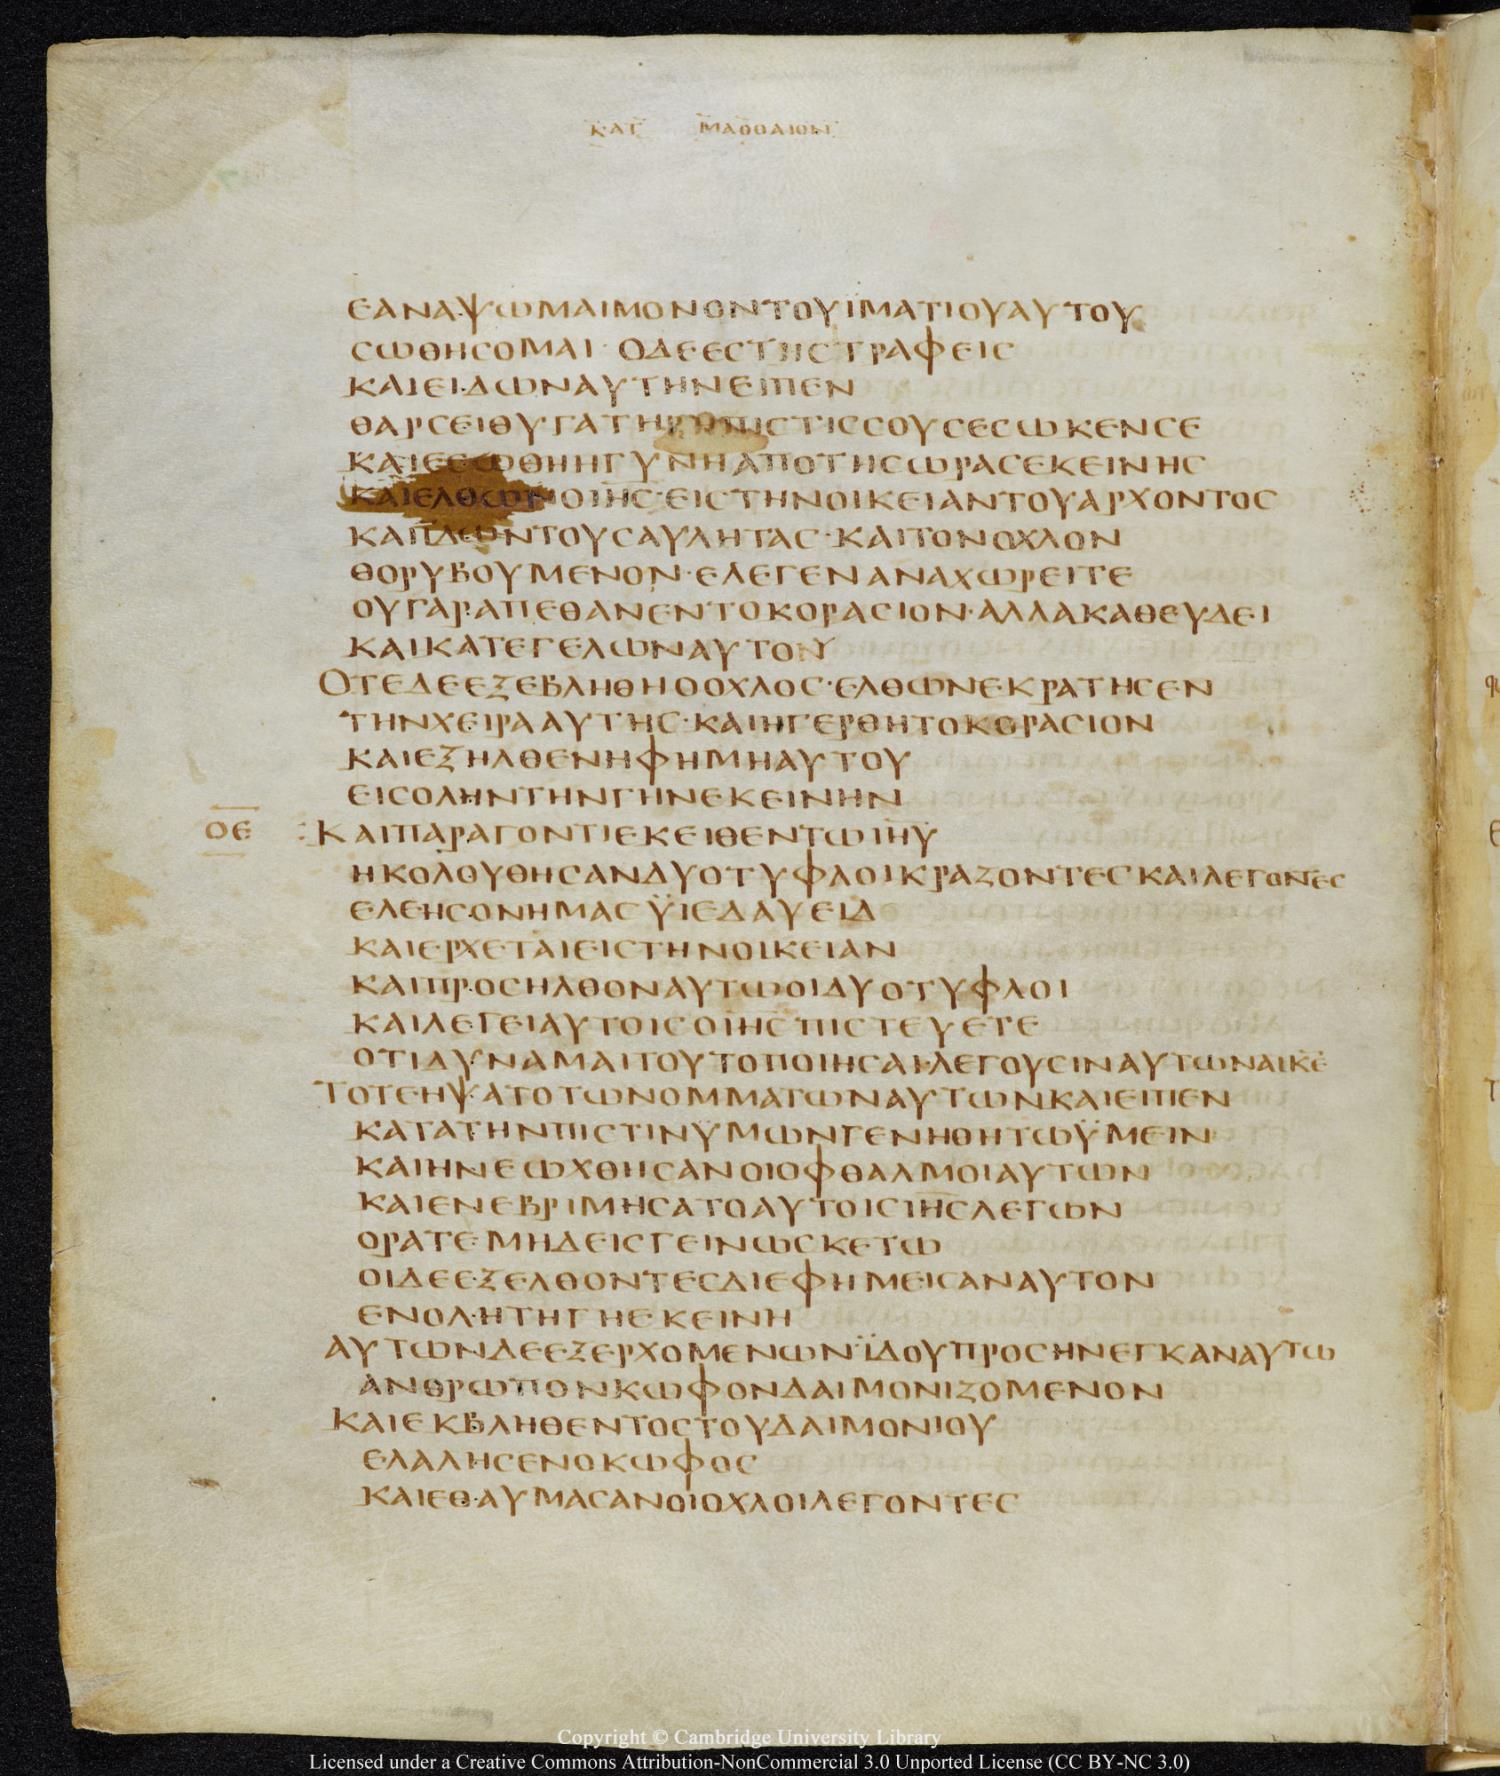 ΚΑΤ ΜΑΘΘΑΙΟΝ
ΕΑΝΑΨΩΜΑΙΜΟΝΟΝΤΟΥΪΜΑΤΙΟΥΑΥΤΟΥ
ϹΩΘΗϹΟΜΑΙ· ΟΔΕΕϹΤΗϹΤΡΑΦΕΙϹ
ΚΑΙΕΙΔΩΝΑΥΤΗΝΕΙΠΕΝ
ΘΑΡϹΕΙΘΥΓΑΤΗΡ ΠΙϹΤΙϹϹΟΥϹΕϹΩΚΕΝϹΕ
ΚΑΙΕϹΩΘΗΗΓΥΝΗΑΠΟΤΗϹΩΡΑϹΕΚΕΙΝΗϹ
ΚΑΙΕΛΘΩΝΟΙΗϹ·ΕΙϹΤΗΝΟΙΚΕΙΑΝΤΟΥΑΡΧΟΝΤΟϹ
ΚΑΙΙΔΩΝΤΟΥϹΑΥΛΗΤΑϹ·ΚΑΙΤΟΝΟΧΛΟΝ
ΘΟΡΥΒΟΥΜΕΝΟΝ·ΕΛΕΓΕΝΑΝΑΧΩΡΕΙΤΕ
ΟΥΓΑΡΑΠΕΘΑΝΕΝΤΟΚΟΡΑϹΙΟΝ·ΑΛΛΑΚΑΘΕΥΔΕΙ
ΚΑΙΚΑΤΕΓΕΛΩΝΑΥΤΟΝ
ΟΤΕΔΕΕΞΕΒΛΗΘΗΟΟΧΛΟϹ·ΕΛΘΩΝΕΚΡΑΤΗϹΕΝ
ΤΗΝΧΕΙΡΑΑΥΤΗϹ·ΚΑΙΗΓΕΡΘΗΤΟΚΟΡΑϹΙΟΝ
ΚΑΙΕΞΗΛΘΕΝΗΦΗΜΗΑΥΤΟΥ
ΕΙϹΟΛΗΝΤΗΝΓΗΝΕΚΕΙΝΗΝ
ΟΕ :ΚΑΙΠΑΡΑΓΟΝΤΙΕΚΕΙΘΕΝΤΩΙΗΥ
ΗΚΟΛΟΥΘΗϹΑΝΔΥΟΤΥΦΛΟΙΚΡΑΖΟΝΤΕϹΚΑΙΛΕΓΟΝΤΕϹ
ΕΛΕΗϹΟΝΗΜΑϹΫΙΕΔΑΥΕΙΔ
ΚΑΙΕΡΧΕΤΑΙΕΙϹΤΗΝΟΙΚΕΙΑΝ
ΚΑΙΠΡΟϹΗΛΘΟΝΑΥΤΩΟΙΔΥΟΤΥΦΛΟΙ
ΚΑΙΛΕΓΕΙΑΥΤΟΙϹΟΙΗϹΠΙϹΤΕΥΕΤΕ
ΟΤΙΔΥΝΑΜΑΙΤΟΥΤΟΠΟΙΗϹΑΙ·ΛΕΓΟΥϹΙΝΑΥΤΩΝΑΙΚΕ
ΤΟΤΕΗΨΑΤΟΤΩΝΟΜΜΑΤΩΝΑΥΤΩΝΚΑΙΕΙΠΕΝ
ΚΑΤΑΤΗΝΠΙϹΤΙΝΫΜΩΝΓΕΝΗΘΗΤΩΫΜΕΙΝ
ΚΑΙΗΝΕΩΧΘΗϹΑΝΟΙΟΦΘΑΛΜΟΙΑΥΤΩΝ
ΚΑΙΕΝΕΒΡΙΜΗϹΑΤΟΑΥΤΟΙϹΙΗϹΛΕΓΩΝ
ΟΡΑΤΕΜΗΔΕΙϹΓΕΙΝΩϹΚΕΤΩ
ΟΙΔΕΕΞΕΛΘΟΝΤΕϹΔΙΕΦΗΜΕΙϹΑΝΑΥΤΟΝ
ΕΝΟΛΗΤΗΓΗΕΚΕΙΝΗ
ΑΥΤΩΝΔΕΕΞΕΡΧΟΜΕΝΩΝ·ΪΔΟΥΠΡΟϹΗΝΕΓΚΑΝΑΥΤΩ
ΑΝΘΡΩΠΟΝΚΩΦΟΝΔΑΙΜΟΝΙΖΟΜΕΝΟΝ
ΚΑΙΕΚΒΛΗΘΕΝΤΟϹΤΟΥΔΑΙΜΟΝΙΟΥ
ΕΛΑΛΗϹΕΝΟΚΩΦΟϹ
ΚΑΙΕΘΑΥΜΑϹΑΝΟΙΟΧΛΟΙΛΕΓΟΝΤΕϹ
Copyright © Cambridge University Library
Licensed under a Creative Commons Attribution-NonCommercial 3.0 Unported License (CC BY-NC 3.0)